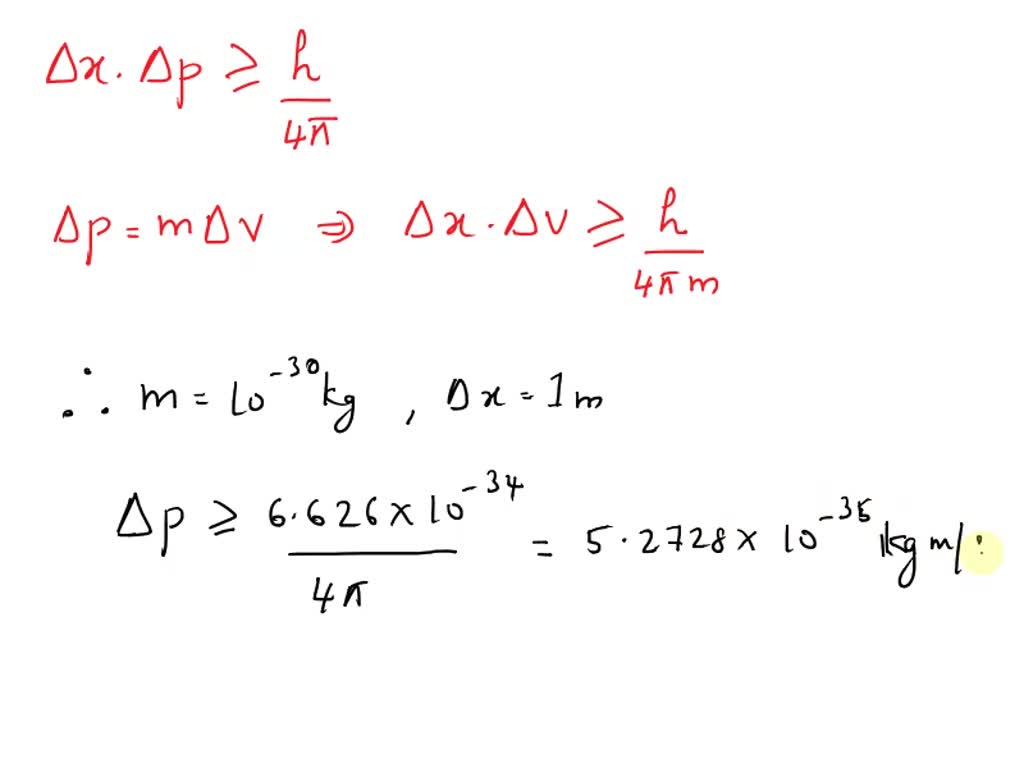 Δx. Δp ≥ h/4π
Δp = mΔv ⇒ Δx. Δv ≥ h/4πm
∴ m = 10⁻³⁰ kg, Δx = 1m
Δp ≥ 6.626 x 10⁻³⁴/4π = 5.2728 x 10⁻³⁵ kg m/